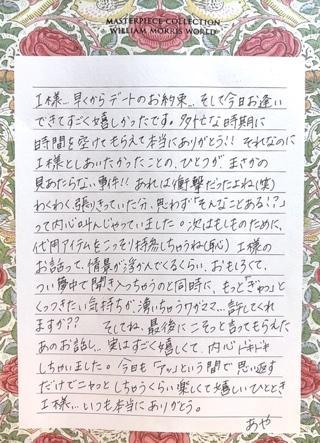 MASTERPIECE COLLECTION
WILLIAM MORRIS WORLD
I様… 早くからデートのお約束… そして今日お逢い
できてすごく嬉しかったです。多忙な時期に
時間を空けてもらえて本当にありがとう!! それなのに
I様としあいたかったことの、ひとつが まさかの
見あたらない事件!! あれは衝撃だったよね(笑)
わくわく、張りきっていた分、思わず「そんなことある!?」
って内心叫んじゃっていました。次はもしものために、
代用アイテムをこっそり持参しちゃうね(恥) I様の
お話って、情景が浮かんでくるくらい、おもしろくて、
つい夢中で聞き入っちゃうのと同時に、もっと「ぎゅっ」と
くっつきたい気持ちが、湧いちゃうワガママ… 許してくれ
ますか?? そしてね、最後にこそっと言ってもらえた
あのお話し… 実はすごく嬉しくて、内心ドキドキ
しちゃいました。今日も「アッ」という間で 思い返す
だけでニヤッとしちゃうくらい楽しくて嬉しいひととき
I様… いつも本当にありがとう。
あや